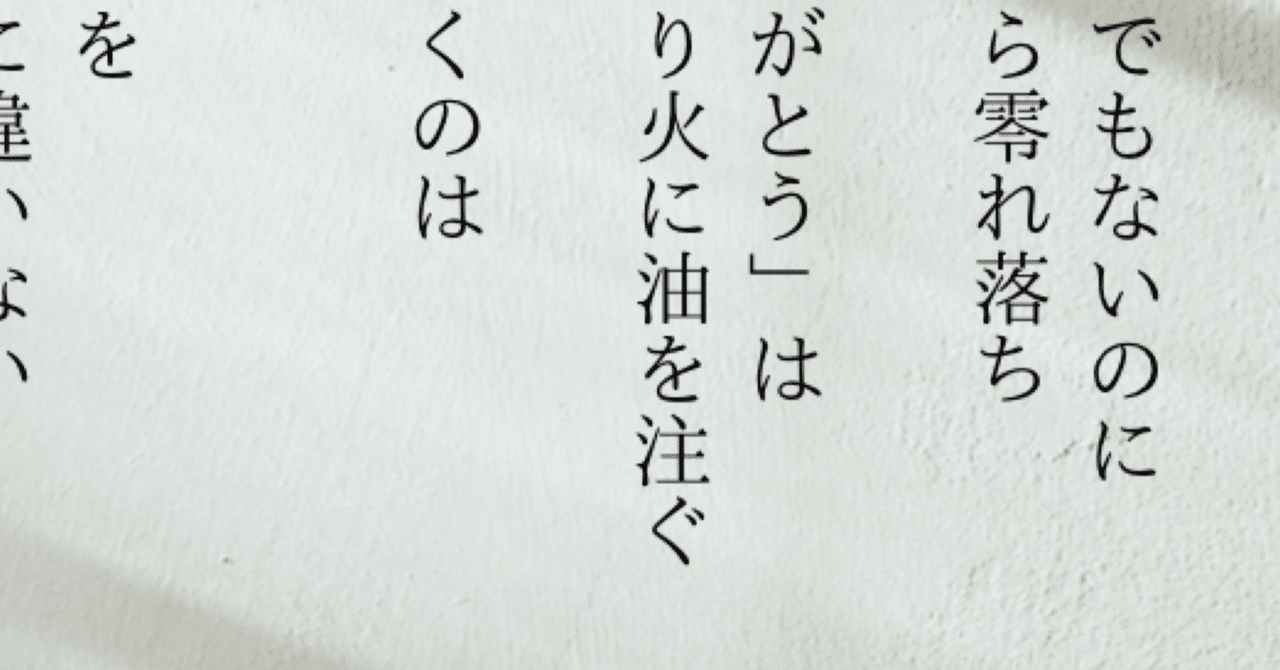 でもないのに
ら零れ落ち
がとう」は
り火に油を注ぐ
くのは
を
に違いない